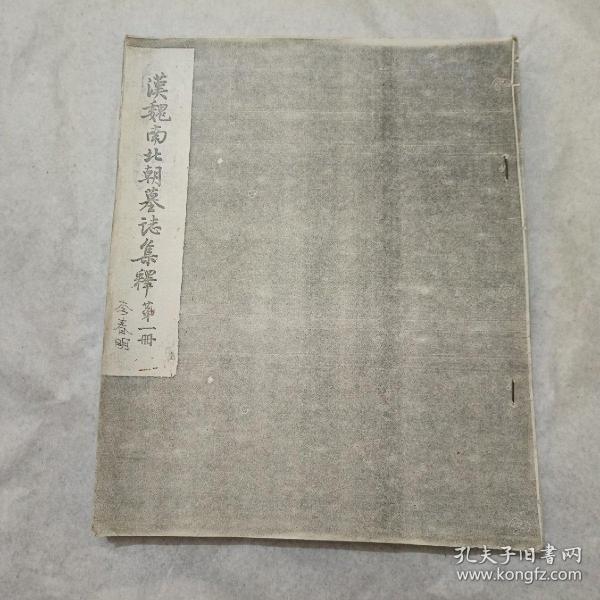 漢魏南北朝墓誌集釋 第一冊
李春明
孔夫子旧书网
www.kongfz.com